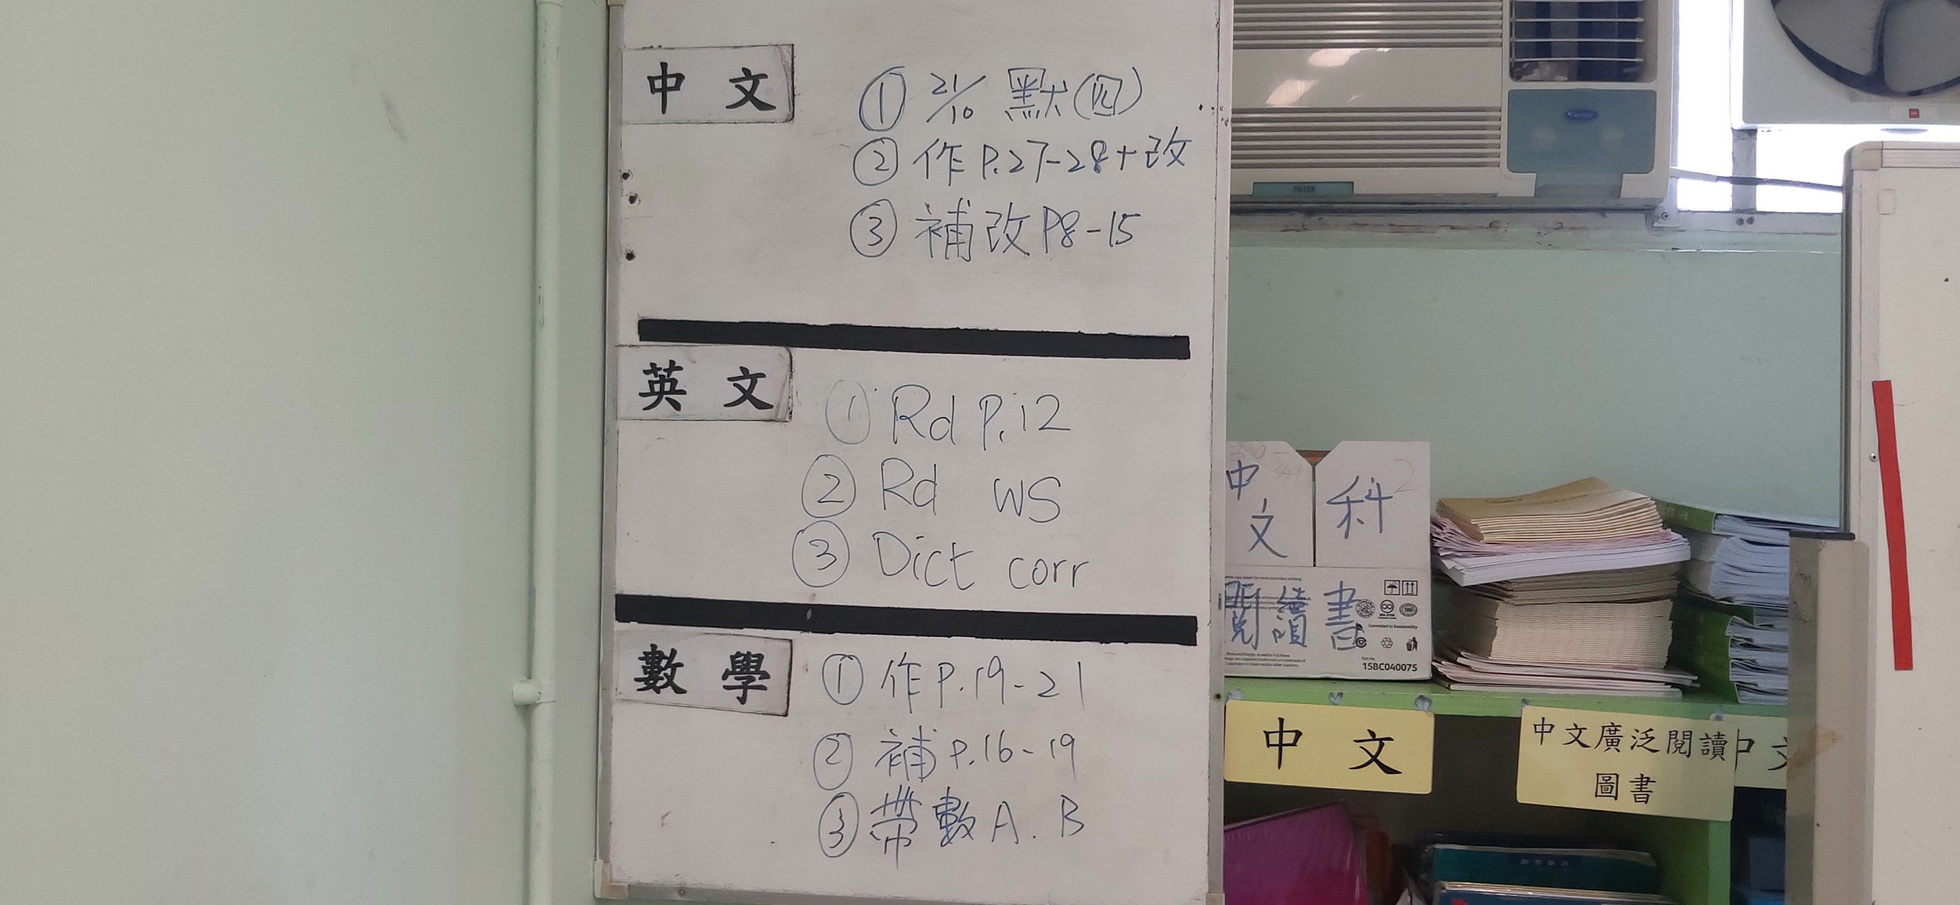 中文
① 21/10 默(四)
② 作 P.27-28+改
③ 補改 P8-15
英文
① Rd P.12
② Rd WS
③ Dict corr
數學
① 作 P.19-21
② 補 P.16-19
③ 帶數 A. B
Carrier
中文科
閱讀書
15BC040075
中文
中文廣泛閱讀
圖書
中文